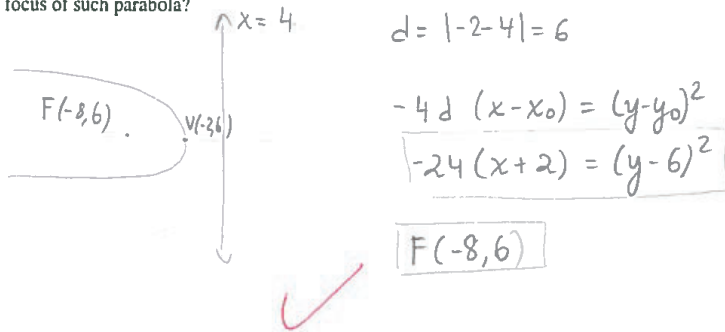 focus of such parabola?
x = 4
F(-8,6)
V(-2,6)
d = |-2-4| = 6
-4d (x-x₀) = (y-y₀)²
-24 (x+2) = (y-6)²
F(-8,6)